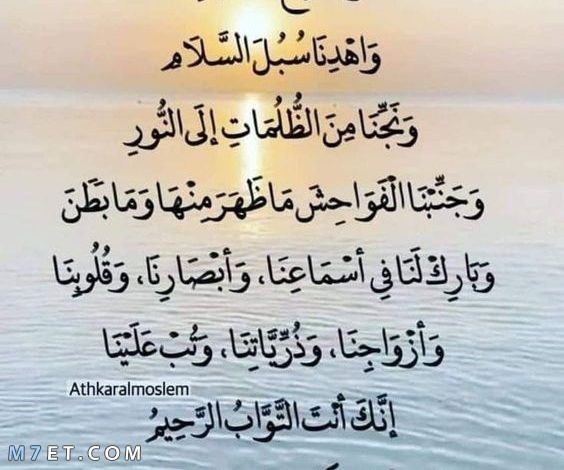 وَاهْدِنَا سُبُلَ السَّلَامِ
وَنَجِّنَا مِنَ الظُّلُمَاتِ إِلَى النُّورِ
وَجَنِّبْنَا الْفَوَاحِشَ مَا ظَهَرَ مِنْهَا وَمَا بَطَنَ
وَبَارِكْ لَنَا فِي أَسْمَاعِنَا، وَأَبْصَارِنَا، وَقُلُوبِنَا
وَأَزْوَاجِنَا، وَذُرِّيَّاتِنَا، وَتُبْ عَلَيْنَا
Athkaralmoslem
إِنَّكَ أَنْتَ التَّوَّابُ الرَّحِيمُ
M7ET.COM